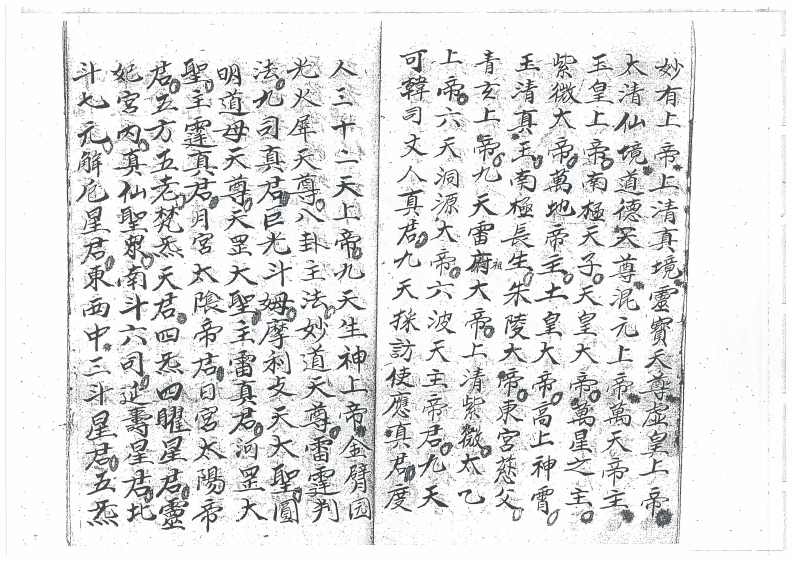 妙有上帝上清真境靈寶天尊虛皇上帝
太清仙境道德天尊混元上帝萬天帝主
玉皇上帝南極天子天皇大帝萬星之主
紫微大帝萬地帝主土皇大帝高上神霄
玉清真王南極長生朱陵大帝東宮慈父
青玄上帝九天雷祖府大帝上清紫微太乙
上帝六天洞源大帝六波天主帝君九天
可韓司丈人真君九天採訪使應真君度
人三十二天上帝九天生神上帝金臂圓
光火犀天尊八卦主法妙道天尊雷霆判
法九司真君巨光斗姆摩利支天大聖圓
明道母天尊天罡大聖主雷真君河罡大
聖主霆真君月宮太陰帝君日宮太陽帝
君五方五老梵炁天君四炁四曜星君靈
妃宮內真仙聖眾南斗六司延壽星君北
斗七元解厄星君東西中三斗星君五炁